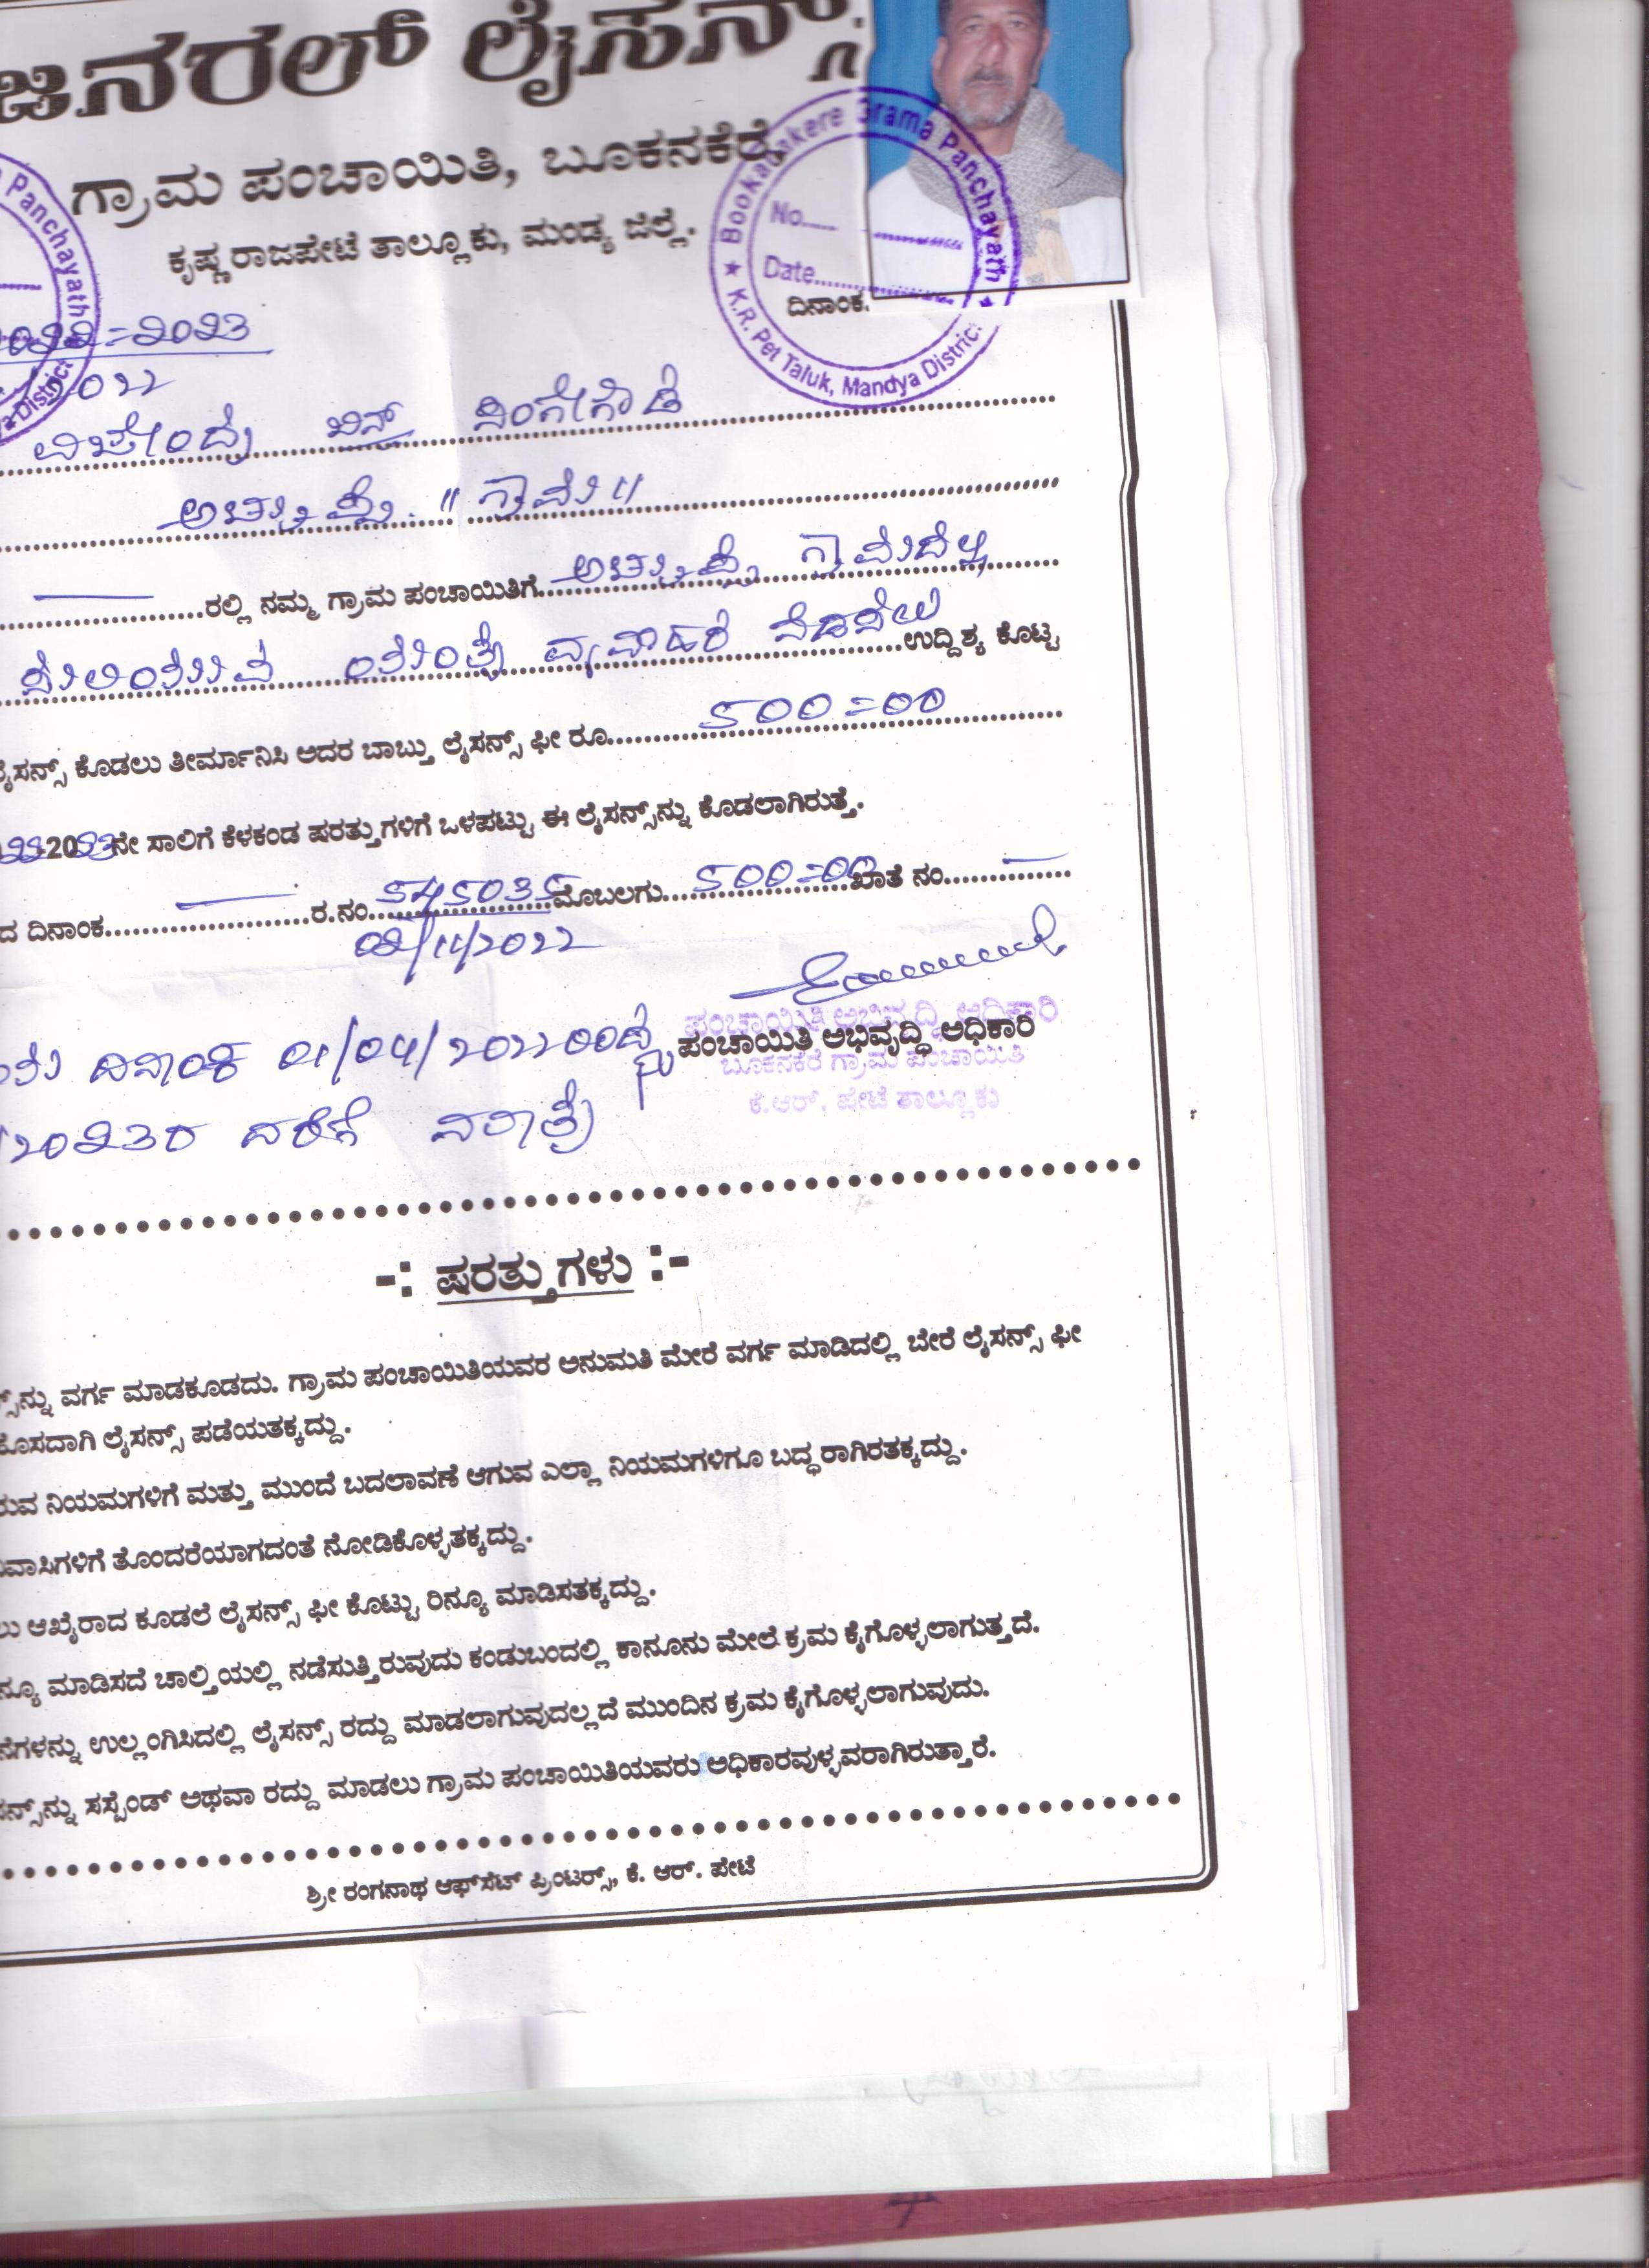 ಜನರಲ್ ಲೈಸನ್ಸ್
ಗ್ರಾಮ ಪಂಚಾಯಿತಿ, ಬೂಕನಕೆರೆ,
ಕೃಷ್ಣರಾಜಪೇಟೆ ತಾಲ್ಲೂಕು, ಮಂಡ್ಯ ಜಿಲ್ಲೆ.
Bookanakere Grama Panchayath
No.....
Date..........
K.R. Pet Taluk, Mandya District
Panchayath
ದಿನಾಂಕ.
೨೦೨೨=೨೦೨೩
/2022
ಬಿನ್ ನಿಂಗೇಗೌಡ
.....ರಲ್ಲಿ ನಮ್ಮ ಗ್ರಾಮ ಪಂಚಾಯಿತಿಗೆ.....
.....ಉದ್ದಿಶ್ಯ ಕೊಟ್ಟ
ಲೈಸನ್ಸ್ ಕೊಡಲು ತೀರ್ಮಾನಿಸಿ ಅದರ ಬಾಬ್ತು ಲೈಸನ್ಸ್ ಫೀ ರೂ.....500=00
2023ನೇ ಸಾಲಿಗೆ ಕೆಳಕಂಡ ಷರತ್ತುಗಳಿಗೆ ಒಳಪಟ್ಟು ಈ ಲೈಸನ್ಸ್‌ನ್ನು ಕೊಡಲಾಗಿರುತ್ತೆ.
ದ ದಿನಾಂಕ..........ರ.ನಂ.....545035 ಮೊಬಲಗು.....500=00 ಖಾತೆ ನಂ..........
02/11/2022
ದಿನಾಂಕ 01/04/2022ರಿಂದ
ಪಂಚಾಯಿತಿ ಅಭಿವೃದ್ಧಿ ಅಧಿಕಾರಿ
ಪಂಚಾಯಿತಿ ಅಭಿವೃದ್ಧಿ ಅಧಿಕಾರಿ
ಬೂಕನಕೆರೆ ಗ್ರಾಮ ಪಂಚಾಯಿತಿ
ಕೆ.ಆರ್. ಪೇಟೆ ತಾಲ್ಲೂಕು
/2023ರ ವರೆಗೆ ಮಾತ್ರ
-: ಷರತ್ತುಗಳು :-
ನ್ಸ್‌ನ್ನು ವರ್ಗ ಮಾಡಕೂಡದು. ಗ್ರಾಮ ಪಂಚಾಯಿತಿಯವರ ಅನುಮತಿ ಮೇರೆ ವರ್ಗ ಮಾಡಿದಲ್ಲಿ ಬೇರೆ ಲೈಸನ್ಸ್ ಫೀ
ಹೊಸದಾಗಿ ಲೈಸನ್ಸ್ ಪಡೆಯತಕ್ಕದ್ದು.
ರುವ ನಿಯಮಗಳಿಗೆ ಮತ್ತು ಮುಂದೆ ಬದಲಾವಣೆ ಆಗುವ ಎಲ್ಲಾ ನಿಯಮಗಳಿಗೂ ಬದ್ಧರಾಗಿರತಕ್ಕದ್ದು.
ನಿವಾಸಿಗಳಿಗೆ ತೊಂದರೆಯಾಗದಂತೆ ನೋಡಿಕೊಳ್ಳತಕ್ಕದ್ದು.
ಲು ಆಖೈರಾದ ಕೂಡಲೆ ಲೈಸನ್ಸ್ ಫೀ ಕೊಟ್ಟು ರಿನ್ಯೂ ಮಾಡಿಸತಕ್ಕದ್ದು.
ನ್ಯೂ ಮಾಡಿಸದೆ ಚಾಲ್ತಿಯಲ್ಲಿ ನಡೆಸುತ್ತಿರುವುದು ಕಂಡುಬಂದಲ್ಲಿ ಕಾನೂನು ಮೇಲೆ ಕ್ರಮ ಕೈಗೊಳ್ಳಲಾಗುತ್ತದೆ.
ನೆಗಳನ್ನು ಉಲ್ಲಂಗಿಸಿದಲ್ಲಿ ಲೈಸನ್ಸ್ ರದ್ದು ಮಾಡಲಾಗುವುದಲ್ಲದೆ ಮುಂದಿನ ಕ್ರಮ ಕೈಗೊಳ್ಳಲಾಗುವುದು.
ಸನ್ಸ್‌ನ್ನು ಸಸ್ಪೆಂಡ್ ಅಥವಾ ರದ್ದು ಮಾಡಲು ಗ್ರಾಮ ಪಂಚಾಯಿತಿಯವರು ಅಧಿಕಾರವುಳ್ಳವರಾಗಿರುತ್ತಾರೆ.
ಶ್ರೀ ರಂಗನಾಥ ಆಫ್‌ಸೆಟ್ ಪ್ರಿಂಟರ್ಸ್, ಕೆ. ಆರ್. ಪೇಟೆ